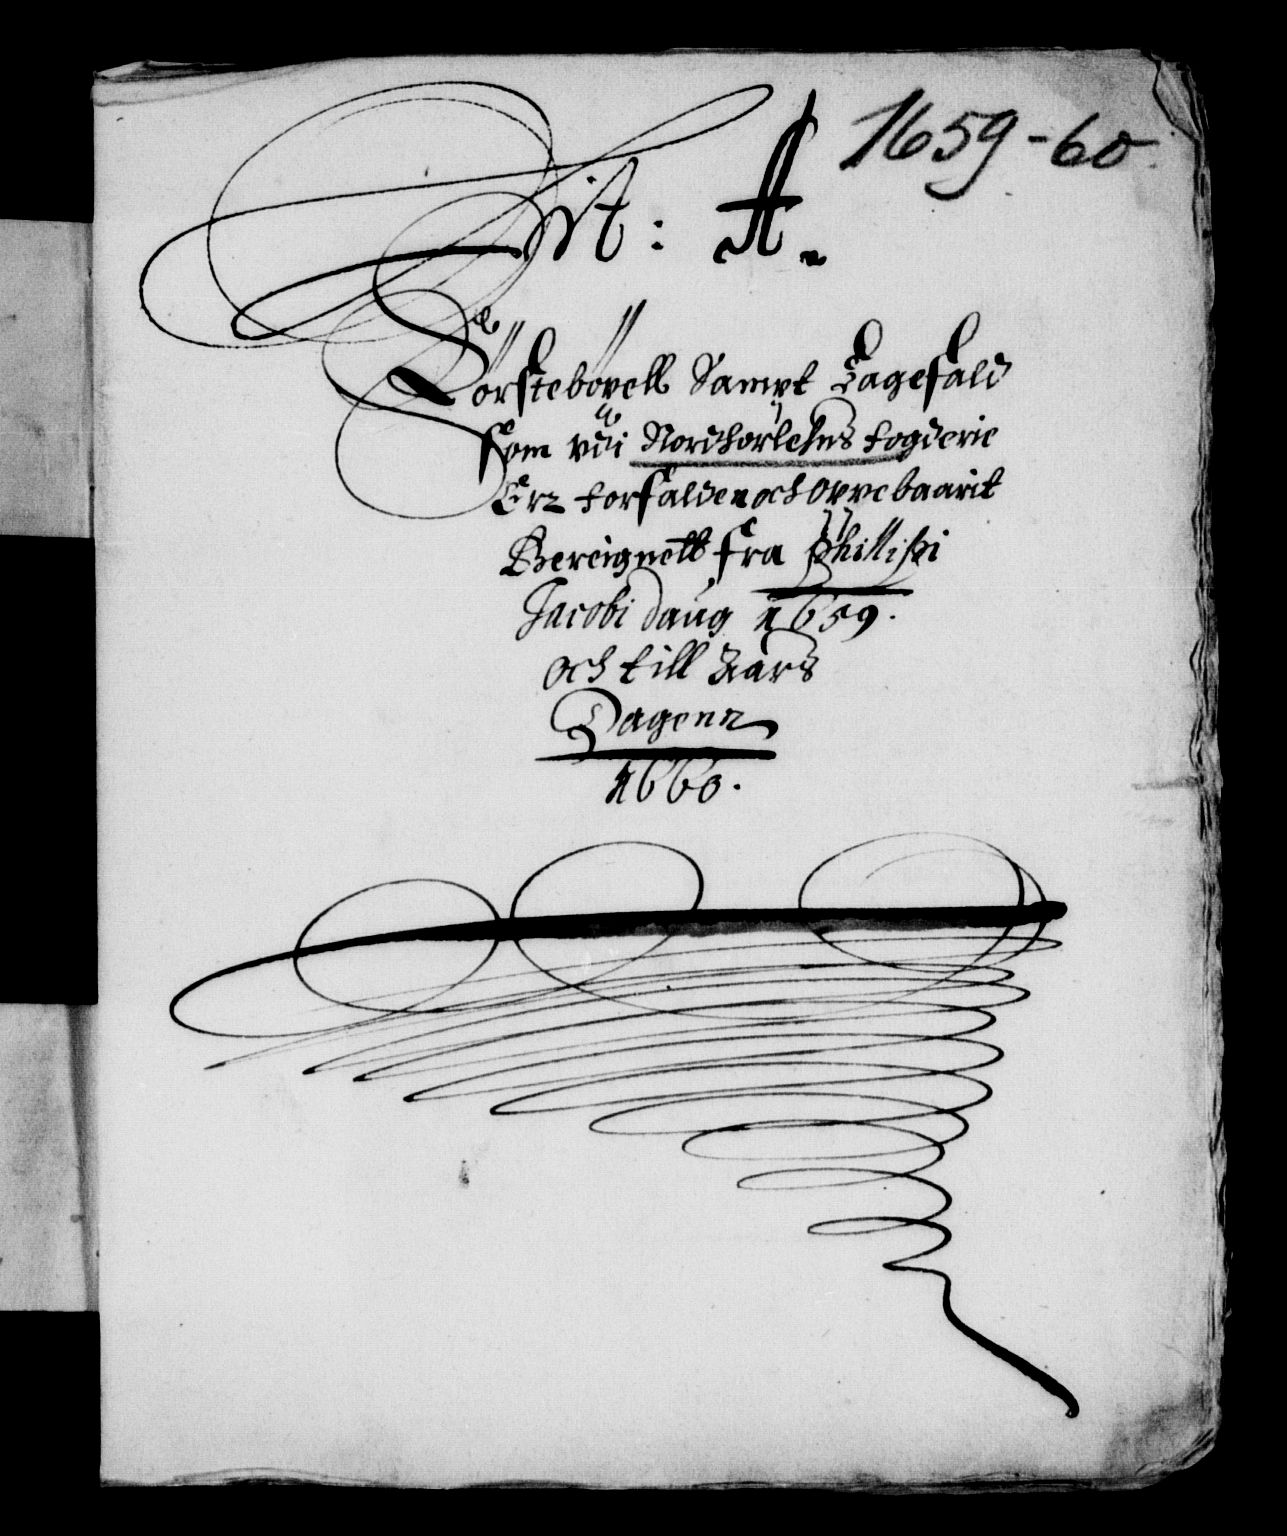 1659-60.
Lit: A.
Förstebövell Sampt Sagefald
som vdi Nordhorlehns fogderie
Erz forfalden och Oppebaarit
Bereignett fra Phillippi
Jacobi daug 1659.
och till Aars
Dagenn
1660.